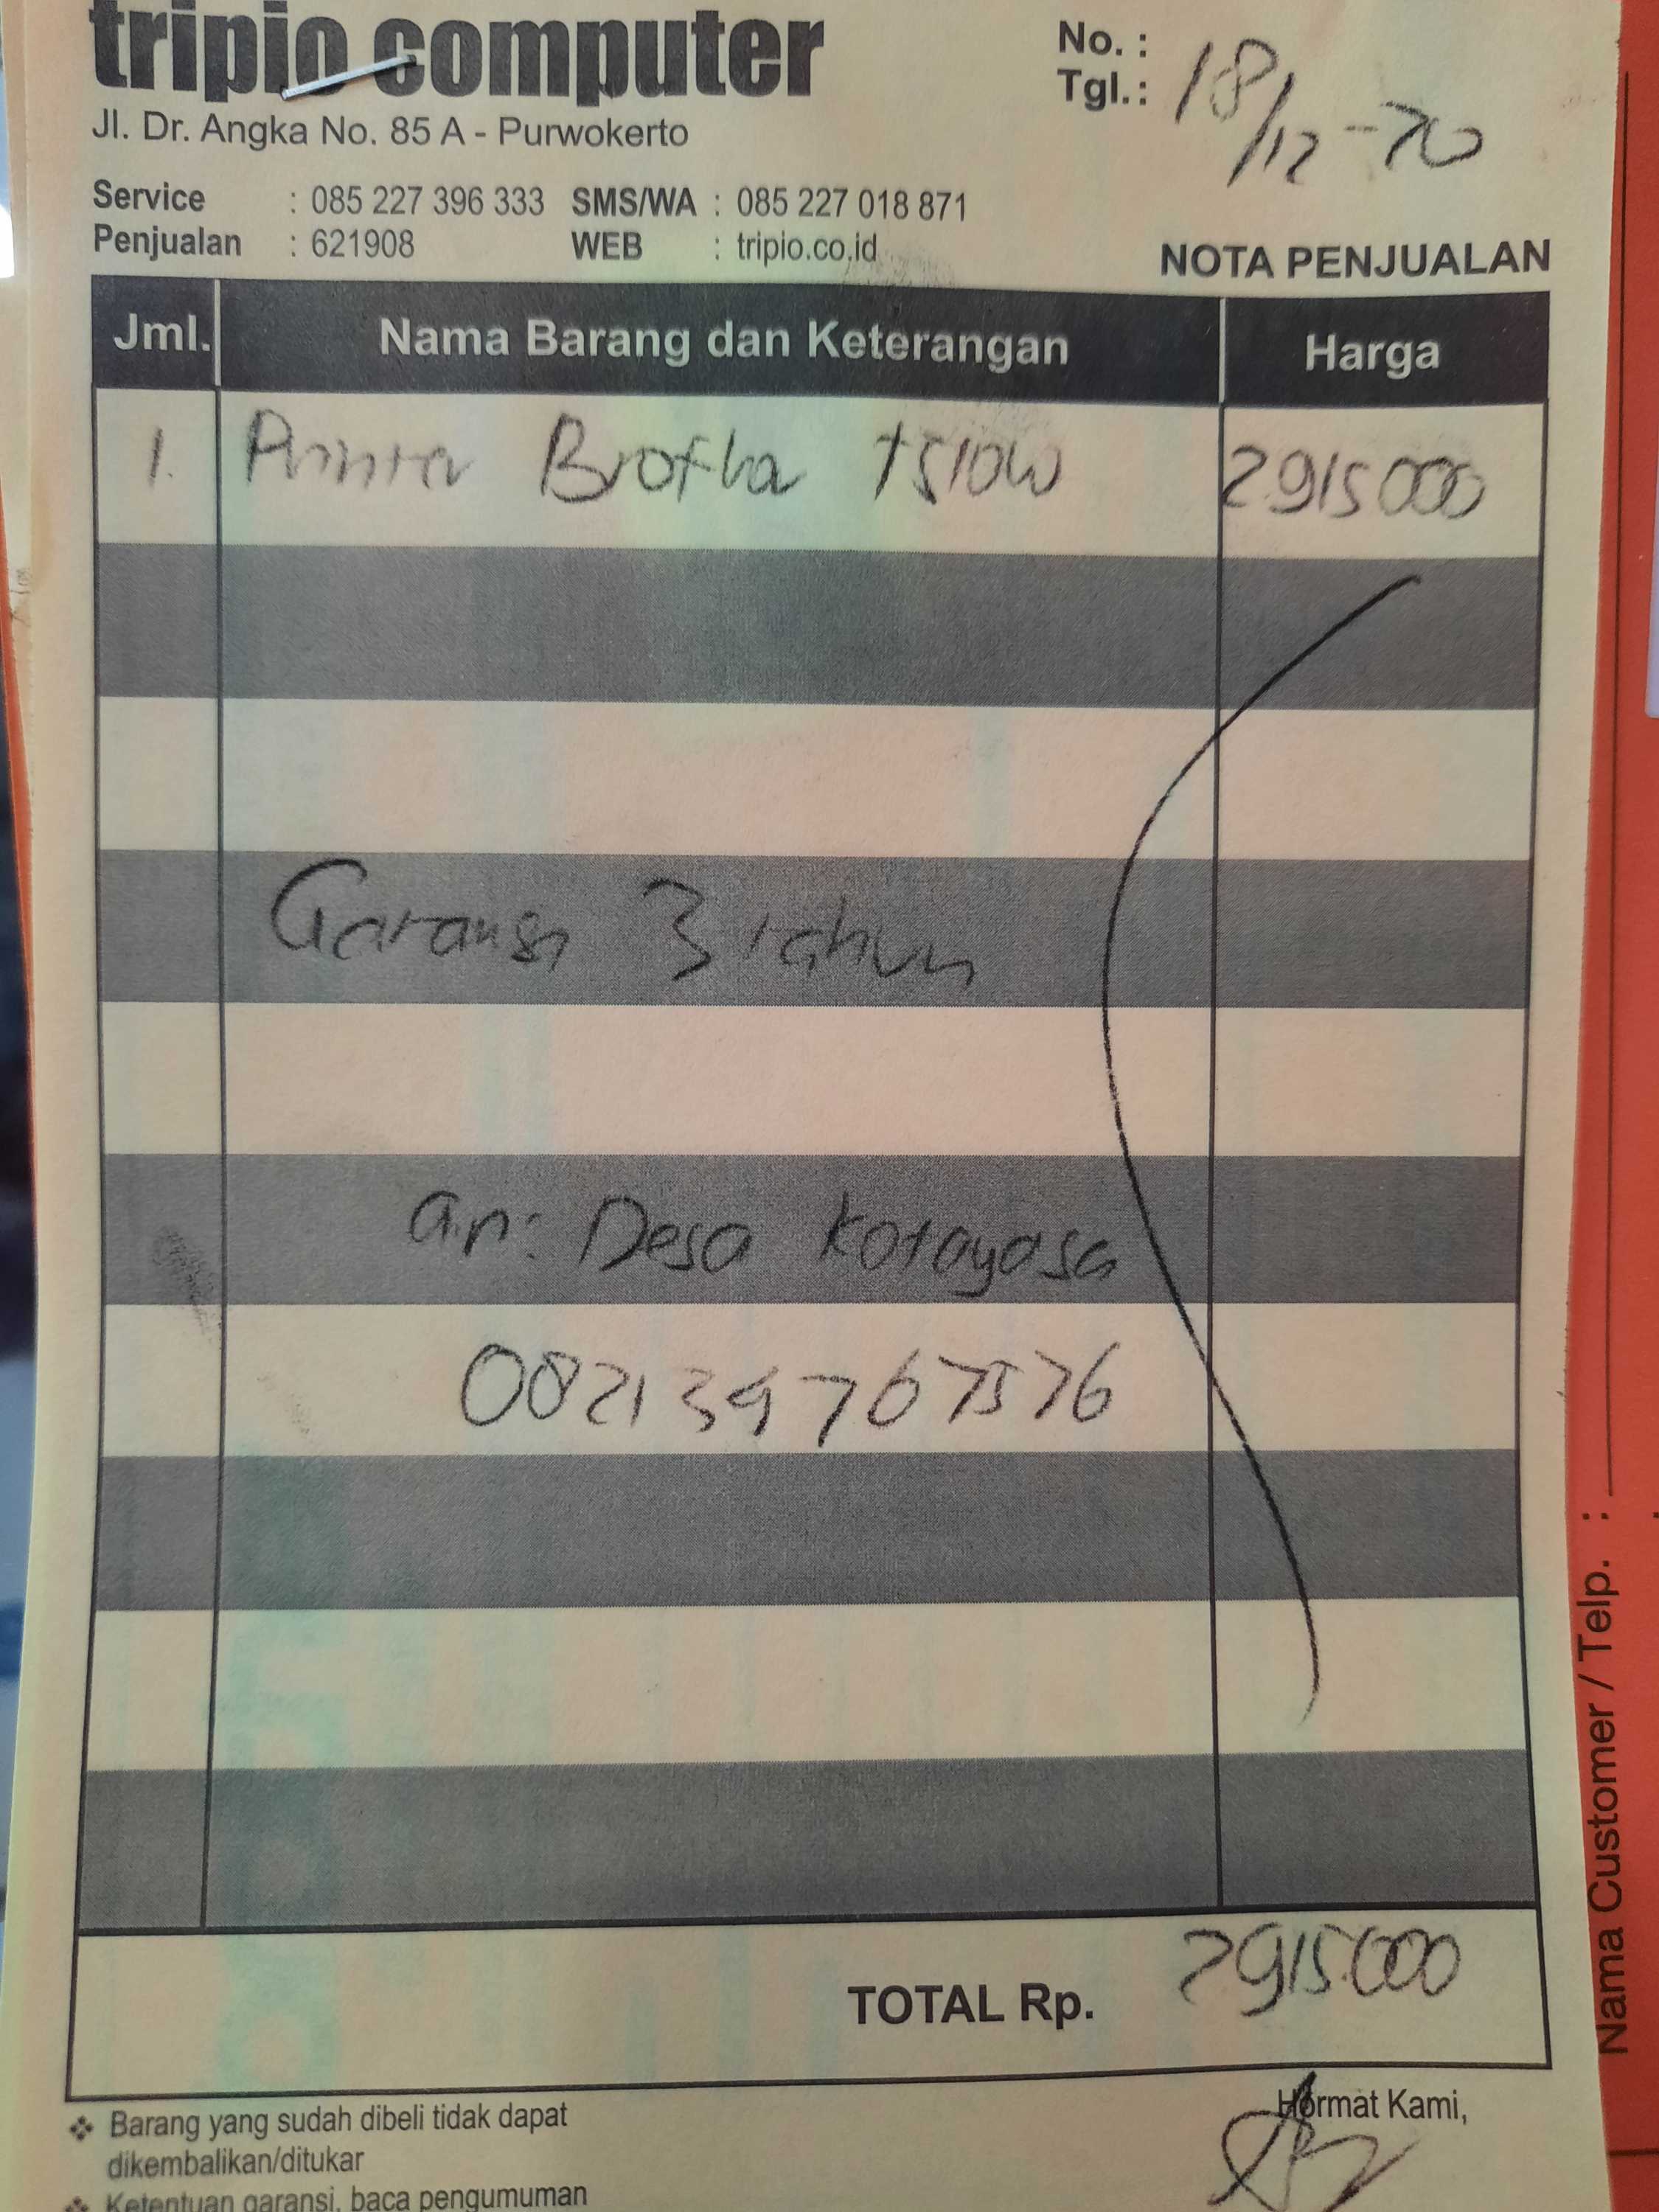 tripio computer
No. :
Tgl. : 18/12-20
Jl. Dr. Angka No. 85 A - Purwokerto
Service : 085 227 396 333 SMS/WA : 085 227 018 871
Penjualan : 621908 WEB : tripio.co.id
NOTA PENJUALAN
Jml. Nama Barang dan Keterangan Harga
1. Printer Brother T510W 2915000
Garansi 3 tahun
a.n: Desa Kotayasa
082139767576
TOTAL Rp. 2915.000
Hormat Kami,
❖ Barang yang sudah dibeli tidak dapat
dikembalikan/ditukar
❖ Ketentuan garansi, baca pengumuman
Nama Customer / Telp. :